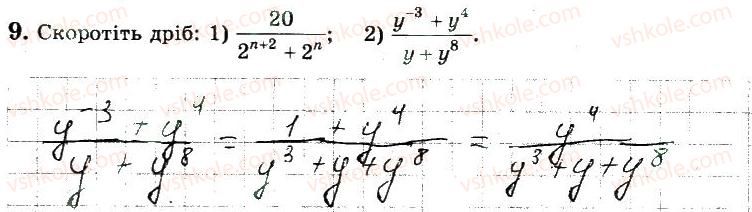 9. Скоротіть дріб: 1) 20 / (2^{n+2} + 2^n); 2) (y^{-3} + y^4) / (y + y^8).
(y^{-3} + y^4) / (y + y^8) = (1 + y^4) / (y^3 + y + y^8) = y^4 / (y^3 + y + y^8)